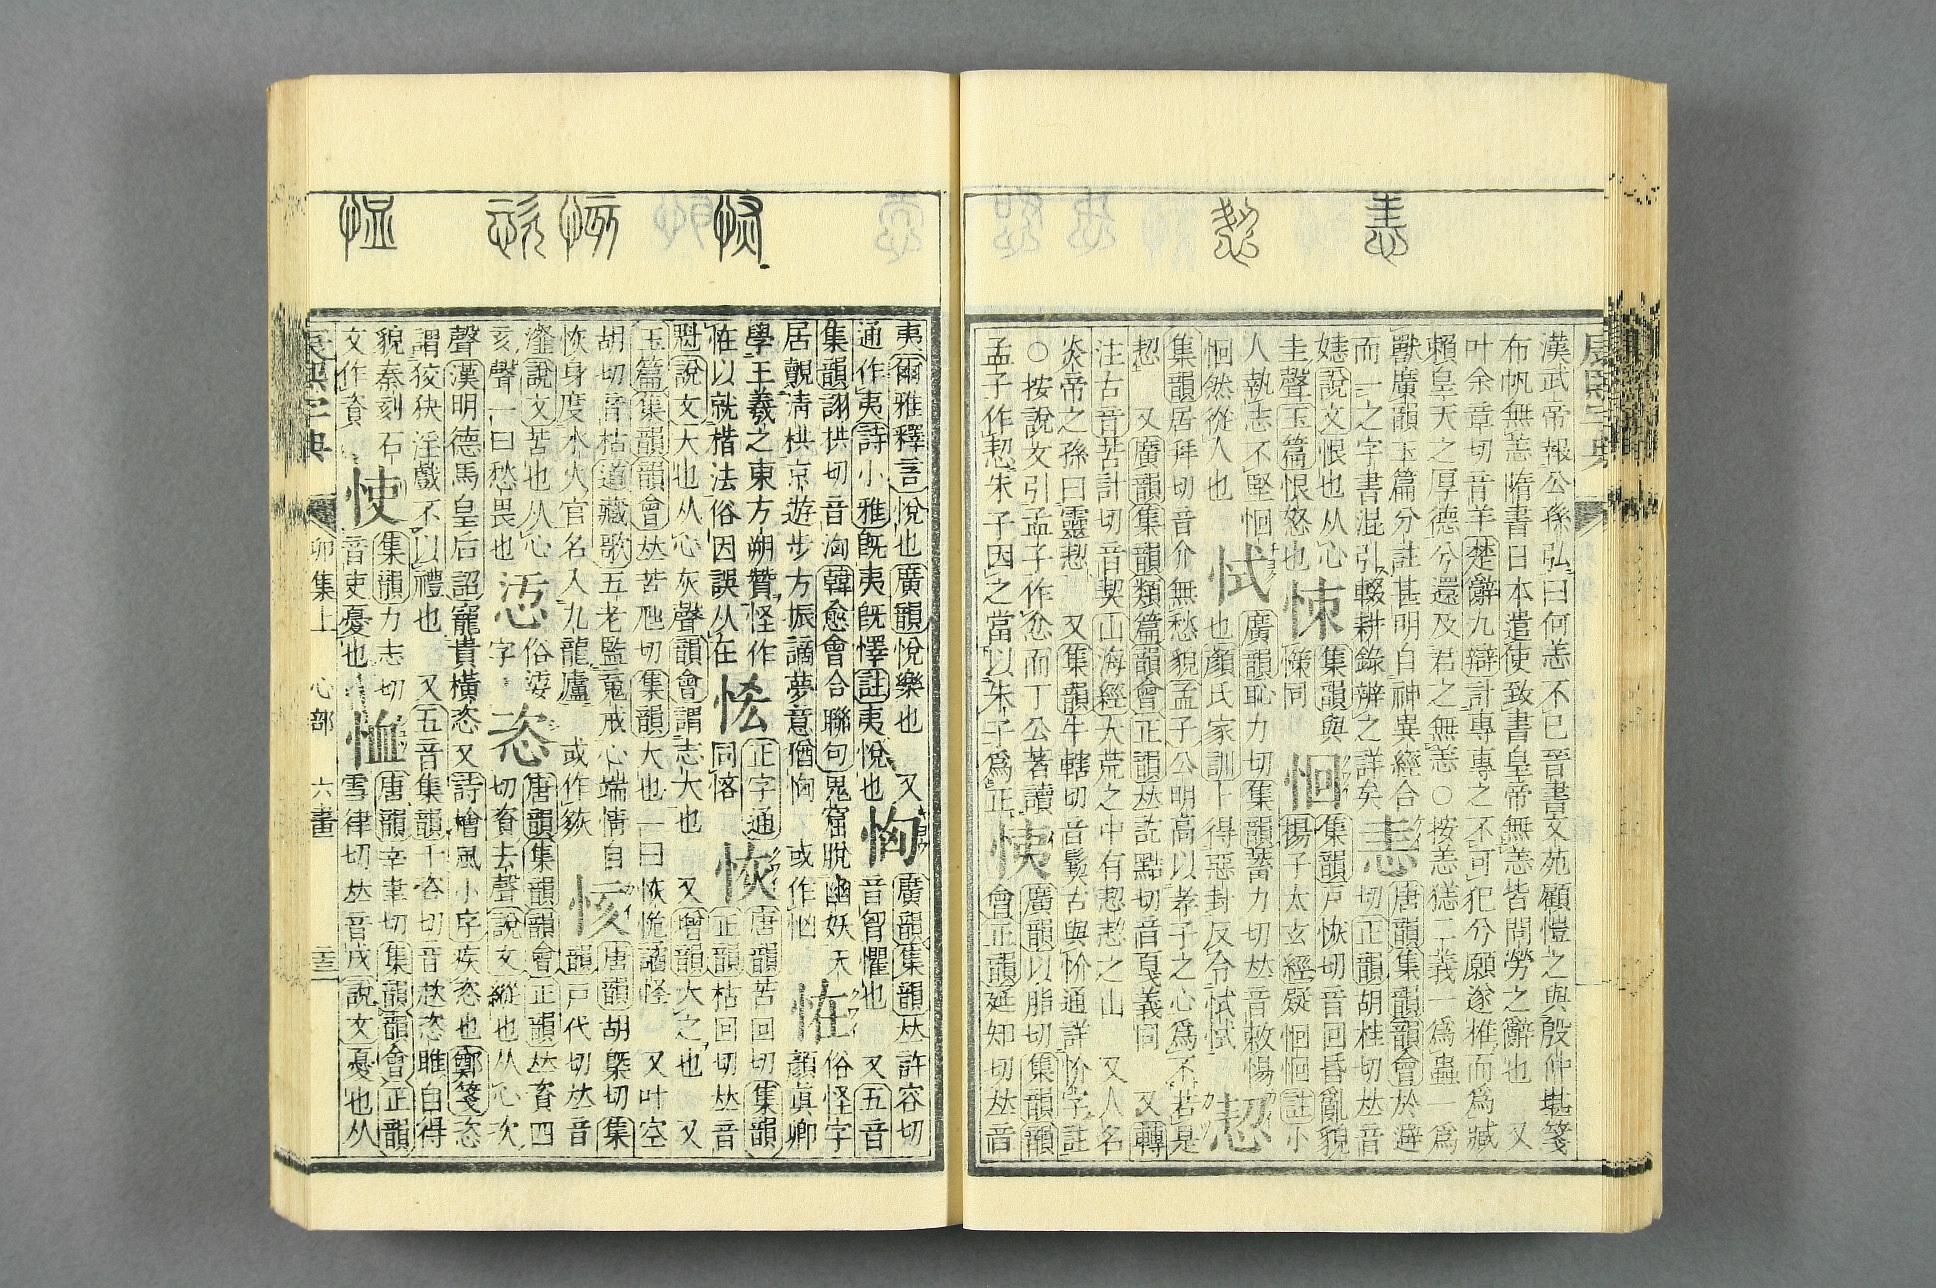 康熙字典
漢武帝報公孫弘曰何恙不已晉書文苑顧愷之與殷仲堪箋
布帆無恙隋書日本遣使致書皇帝無恙皆問勞之辭也 又
叶余章切音羊楚辭九辯計專專之不可犯兮願遂推而爲臧
賴皇天之厚德兮還及君之無恙○按恙㺊二義一爲蟲一爲
獸廣韻玉篇分註甚明自神異經合
而一之字書混引輟耕錄辨之詳矣
恚
唐韻集韻韻會於避
切正韻胡桂切𠀤音
說文恨也从心
圭聲玉篇恨怒也
集韻與
同
恛
集韻戸恢切音回昏亂貌
揚子太玄經疑恛恛註小
人執志不堅恛
恛然從人也
恜
廣韻恥力切集韻蓄力切𠀤音敕惕
也顏氏家訓卜得惡卦反令恜恜
恝
集韻居拜切音介無愁貌孟子公明高以孝子之心爲不若是
恝 又廣韻集韻類篇韻會正韻𠀤訖黠切音戛義同 又轉
注古音苦計切音契山海經大荒之中有恝恝之山 又人名
炎帝之孫曰靈恝 又集韻牛轄切音䯰古與忦通詳忦字註
○按說文引孟子作忿而丁公著讀
孟子作恝朱子因之當以朱子爲正
恞
廣韻以脂切集韻韻
會正韻延知切𠀤音
夷爾雅釋言悅也廣韻悅樂也 又
通作夷詩小雅旣夷旣懌註夷悅也
恟
廣韻集韻𠀤許容切
音胷懼也 又五音
集韻詡拱切音洶韓愈會合聯句鬼窟脫幽妖天
居覿清栱京遊步方振讁夢意猶恟 或作忷
恠
俗怪字
顏眞卿
學王羲之東方朔贊怪作
恠以就楷法俗因誤从在
恡
正字通
同悋
恢
唐韻苦回切集韻
正韻枯回切𠀤音
魁說文大也从心灰聲韻會謂志大也 又增韻大之也 又
玉篇集韻韻會𠀤苦虺切集韻大也一曰恢恑譎怪 又叶空
胡切音枯道藏歌五老監寃戒心端情自
恢身度水火官名入九龍廬 或作㷇
㤥
唐韻胡槩切集
韻戸代切𠀤音
瀣說文苦也从心
亥聲一曰愁畏也
俗婆
字
恣
唐韻集韻韻會正韻𠀤資四
切資去聲說文縱也从心次
聲漢明德馬皇后詔寵貴橫恣 又詩檜風小序疾恣也鄭箋恣
謂狡狭淫戲不以禮也 又五音集韻千咨切音趑恣睢自得
貌秦刻石
文作資
㤦
集韻力志切
音吏憂也
恤
唐韻辛聿切集韻韻會正韻
雪律切𠀤音戌說文憂也从
康熙字典 卯集上 心部 六畫